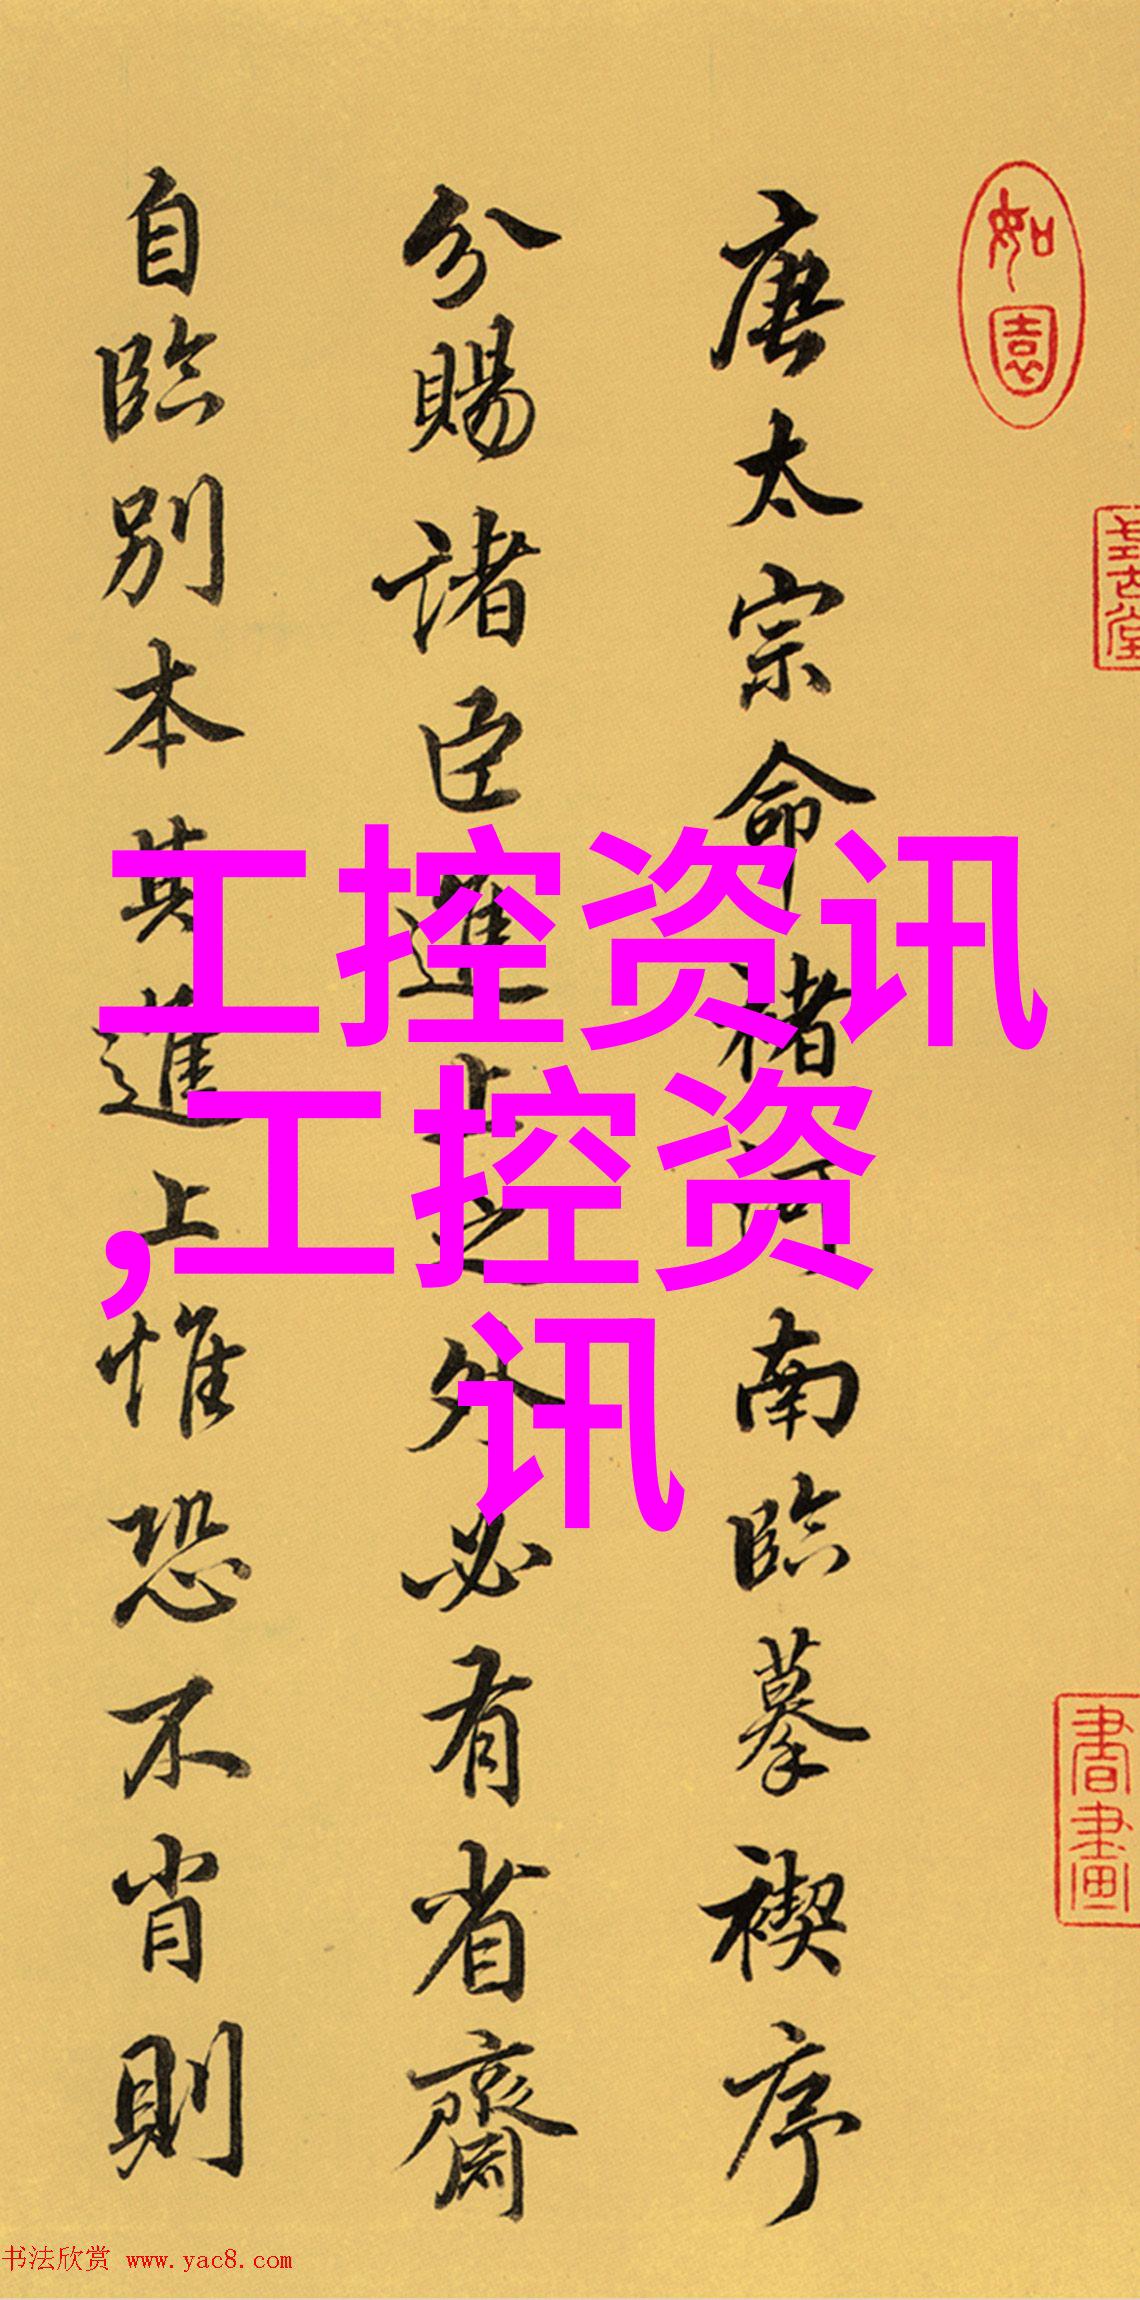 如園
書畫
唐太宗命褚河南臨摹禊序
分賜諸臣進上之外必有省齋
自臨別本其進上惟恐不肖則
工控资讯
,工控资
讯
书法欣赏 www.yac8.com